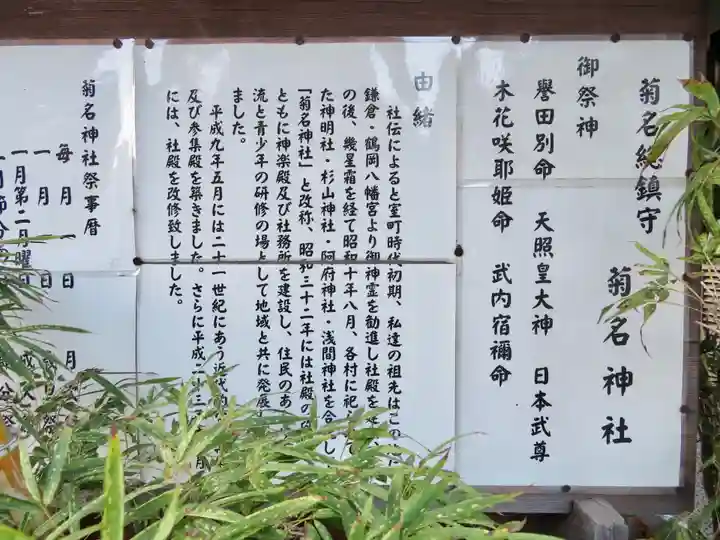 菊名総鎮守
菊名神社
御祭神
譽田別命 天照皇大神 日本武尊
木花咲耶姫命 武内宿禰命
由緒
社伝によると室町時代初期、私達の祖先はこの
鎌倉・鶴岡八幡宮より御神霊を勧進し社殿を
の後、幾星霜を経て昭和十年八月、各村に祀
た神明社・杉山神社・阿府神社・浅間神社を合
「菊名神社」と改称、昭和三十二年には社殿の
ともに神楽殿及び社務所を建設し、住民のあ
流と青少年の研修の場として地域と共に発展
ました。
平成九年五月には二十一世紀にあう近代的
及び参集殿を築きました。さらに平成二十三 月
には、社殿を改修致しました。
菊名神社祭事暦
毎月一日 月
一月 日
一月第二月曜日